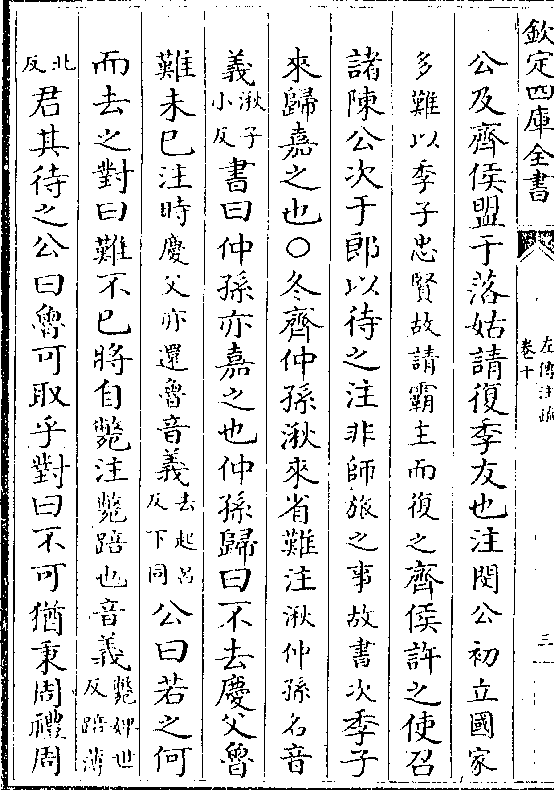 欽定四庫全書
左傳注疏
卷十
三
公及齊侯盟于落姑請復季友也注閔公初立國家
多難以季子忠賢故請霸主而復之齊侯許之使召
諸陳公次于郎以待之注非師旅之事故書次季子
來歸嘉之也○冬齊仲孫湫來省難注湫仲孫名音
義湫子小反書曰仲孫亦嘉之也仲孫歸曰不去慶父魯
難未已注時慶父亦還魯音義去起呂反下同公曰若之何
而去之對曰難不已將自斃注斃踣也音義斃婢世反踣薄
北反君其待之公曰魯可取乎對曰不可猶秉周禮周